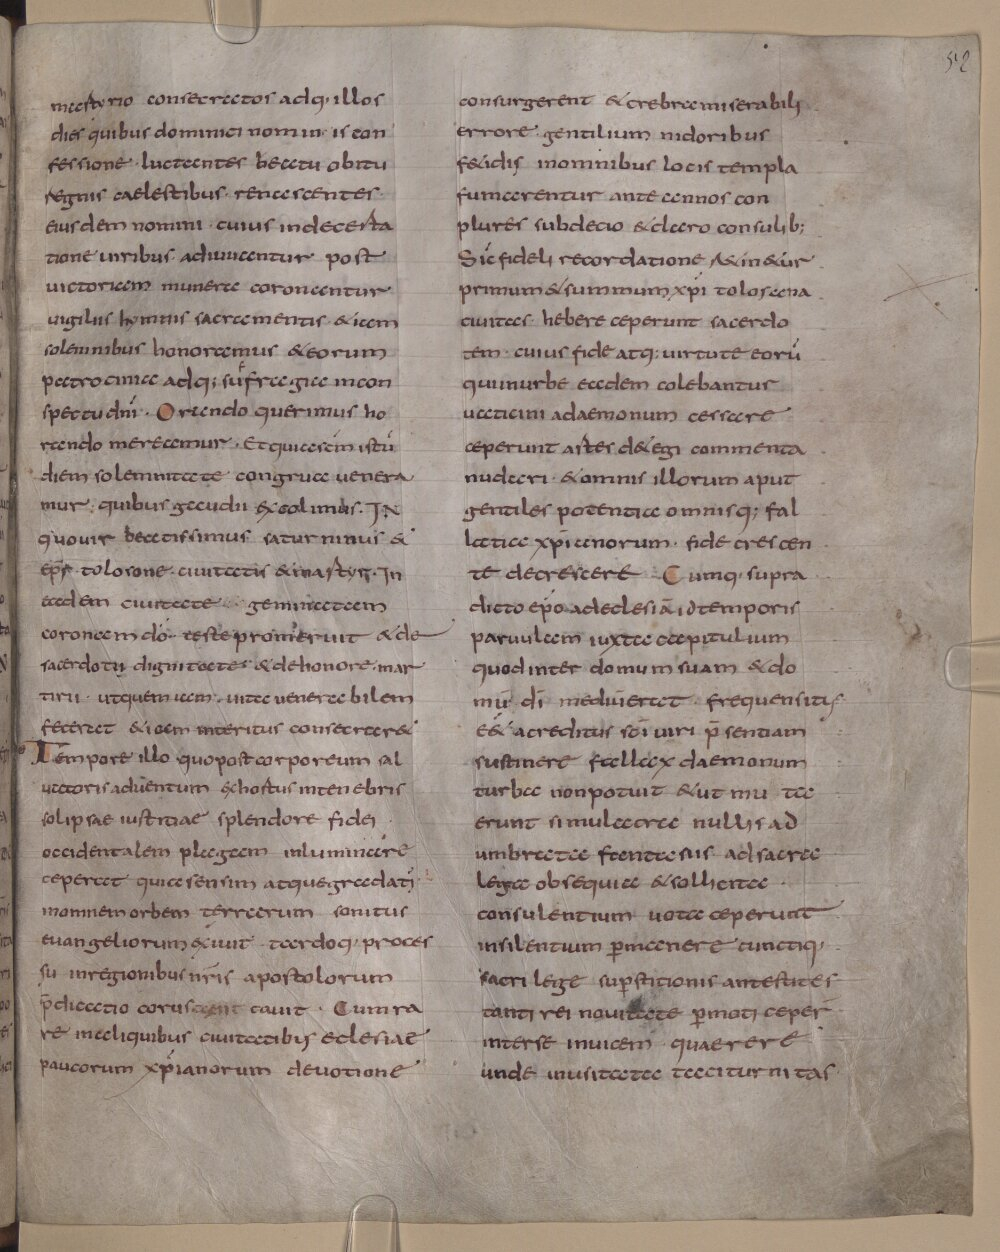 52
mastyrio consecratos adq; illos
dies quibus dominici nomin is con
fessione luctantes beatu obitu
regnis caelestibus renascentes
eiusdem nomini cuius indecerta
tione viribus adiuvantur post
victoriam munere coronantur
vigiliis hymnis sacramentis & iam
solemnibus honoramus & eorum
patrocinia adq; sufragia incon
spectu dni. Orando querimus ho
rando mereamur. Et quia sēm istū
diem solemnitate congrua venera
mur, quibus gaudii excolimus. IN
quo vir beatissimus saturninus &
eps tolosone civitatis & martyr. In
eadem civitate geminatam
coronam dō teste promeruit & de
sacerdotii dignitates & de honore mar
tirii utquem iam vitae venerabilem
fecerat & iam interitus consecrar&
Tempore illo quo post corporeum sal
vatoris adventum exhostus intenebris
sol ipsae iustitiae splendore fidei
occidentalem plagam inluminare
ceperat quia sensim atque gradati
inomnem orbem terrarum sonitus
evangeliorum exivit tardoq; proces
su inregionibus nris apostolorum
p̄dicatio coruscavit. Cum ra
re inaliquibus civitatibus eclesiae
paucorum xpianorum devotione
consurgerent & crebra miserabili
errore gentilium nidoribus
fetidis inomnibus locis templa
fumarentur ante annos con
plures sub decio & clero consulib;
Sic fideli recordatione r&in&ur
primum & summum xpi tolosana
civitas habere ceperunt sacerdo
tem cuius fide atq; virtute eorū
qui inurbe eadem colebantur
vaticini adaemonum cessare
ceperunt astes d&egi commenta
nudari & omnis illorum aput
gentiles potentia omnisq; fal
latia xpianorum fide crescen
te decrescere Cumq; supra
dicto epo adeclesiā id temporis
parvulam iuxta capitulium
quod inter domum suam & do
mū di mediaerat frequens itus
e& acreditus sci viri p̄sentiam
sustinere fallax daemonum
turba non potuit & ut mu ta
erunt simulacra nullis ad
umbrata fantasiis ad sacrae
legae obsequia & sollicita
consulentium vota ceperunt
insilentium pmanere cunctiq;
sacri lege supstitionis antestites
tanti rei novitate pmoti ceper
interse invicem quaerere
unde inusitata taciturnitas